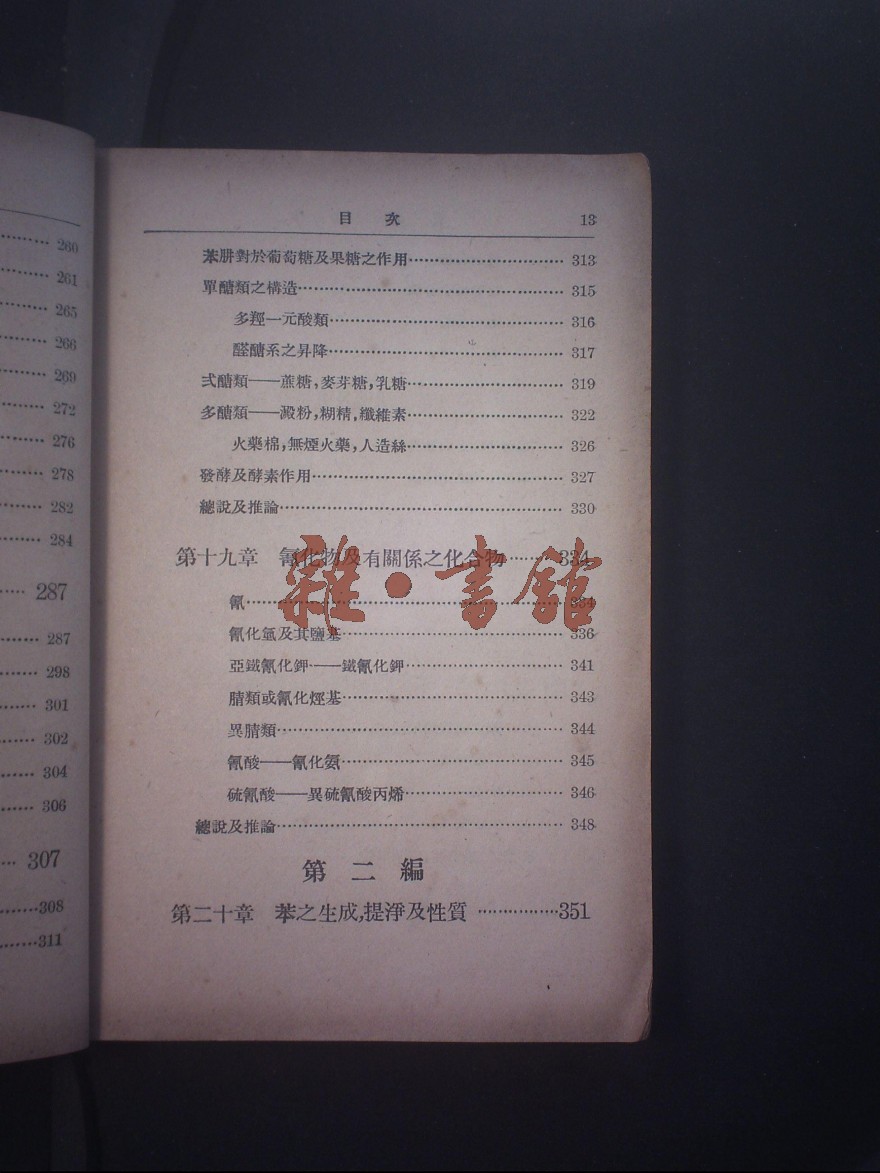 260
261
265
266
269
272
276
278
282
284
287
287
298
301
302
304
306
307
308
311
目 次 13
苯肼對於葡萄糖及果糖之作用 313
單醣類之構造 315
多羥一元酸類 316
醛醣系之昇降 317
弍醣類——蔗糖,麥芽糖,乳糖 319
多醣類——澱粉,糊精,纖維素 322
火藥棉,無煙火藥,人造絲 326
發酵及酵素作用 327
總說及推論 330
第十九章 氰化物及有關係之化合物 334
氰 334
氰化氫及其鹽基 336
亞鐵氰化鉀——鐵氰化鉀 341
腈類或氰化烴基 343
異腈類 344
氰酸——氰化氨 345
硫氰酸——異硫氰酸丙烯 346
總說及推論 348
第二編
第二十章 苯之生成,提淨及性質 351
雜·書館